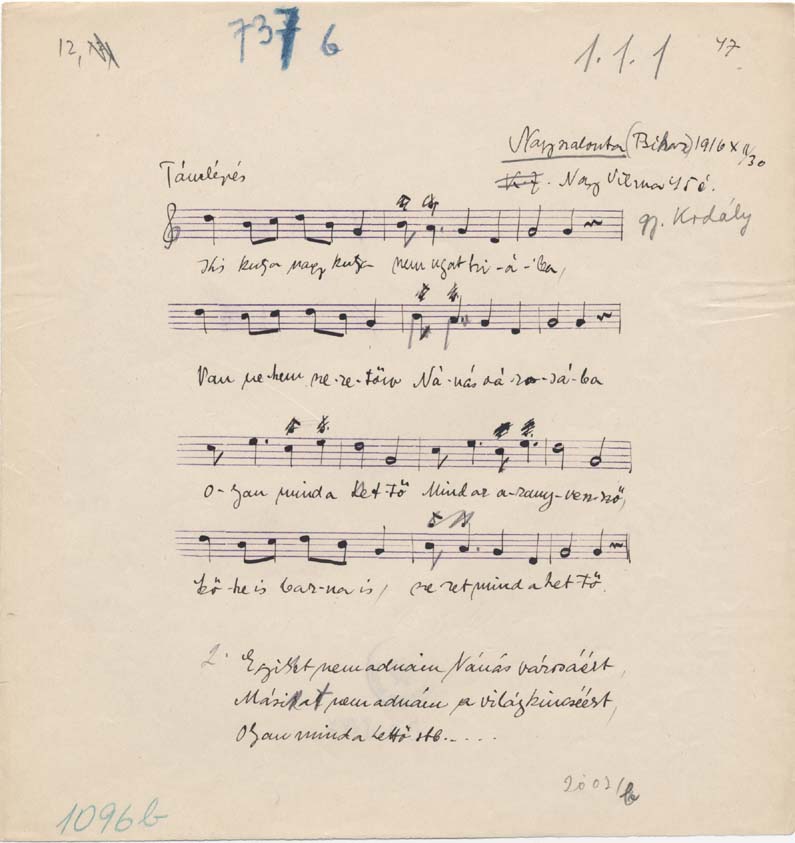 12,
7376
1.1.1
47
Nagyszalonta (Bihar) 1916 X
Nagy Vilma 45 é.
gy. Kodály
Tánclépés
Kis kutya nagy kutya nem ugat hi-á-ba,
Van ne-kem sze-re-tőm Ná-nás vá-ro-sá-ba
O-lyan mind a ket-tő Mind az a-rany-vesz-sző,
Kő-he is bar-na is, sze-ret mind a ket-tő.
2. Egyiket nem adnám Nánás városáért,
Másikat nem adnám a világ kincséért,
Olyan mind a kettő stb.....
2002/b
1096b